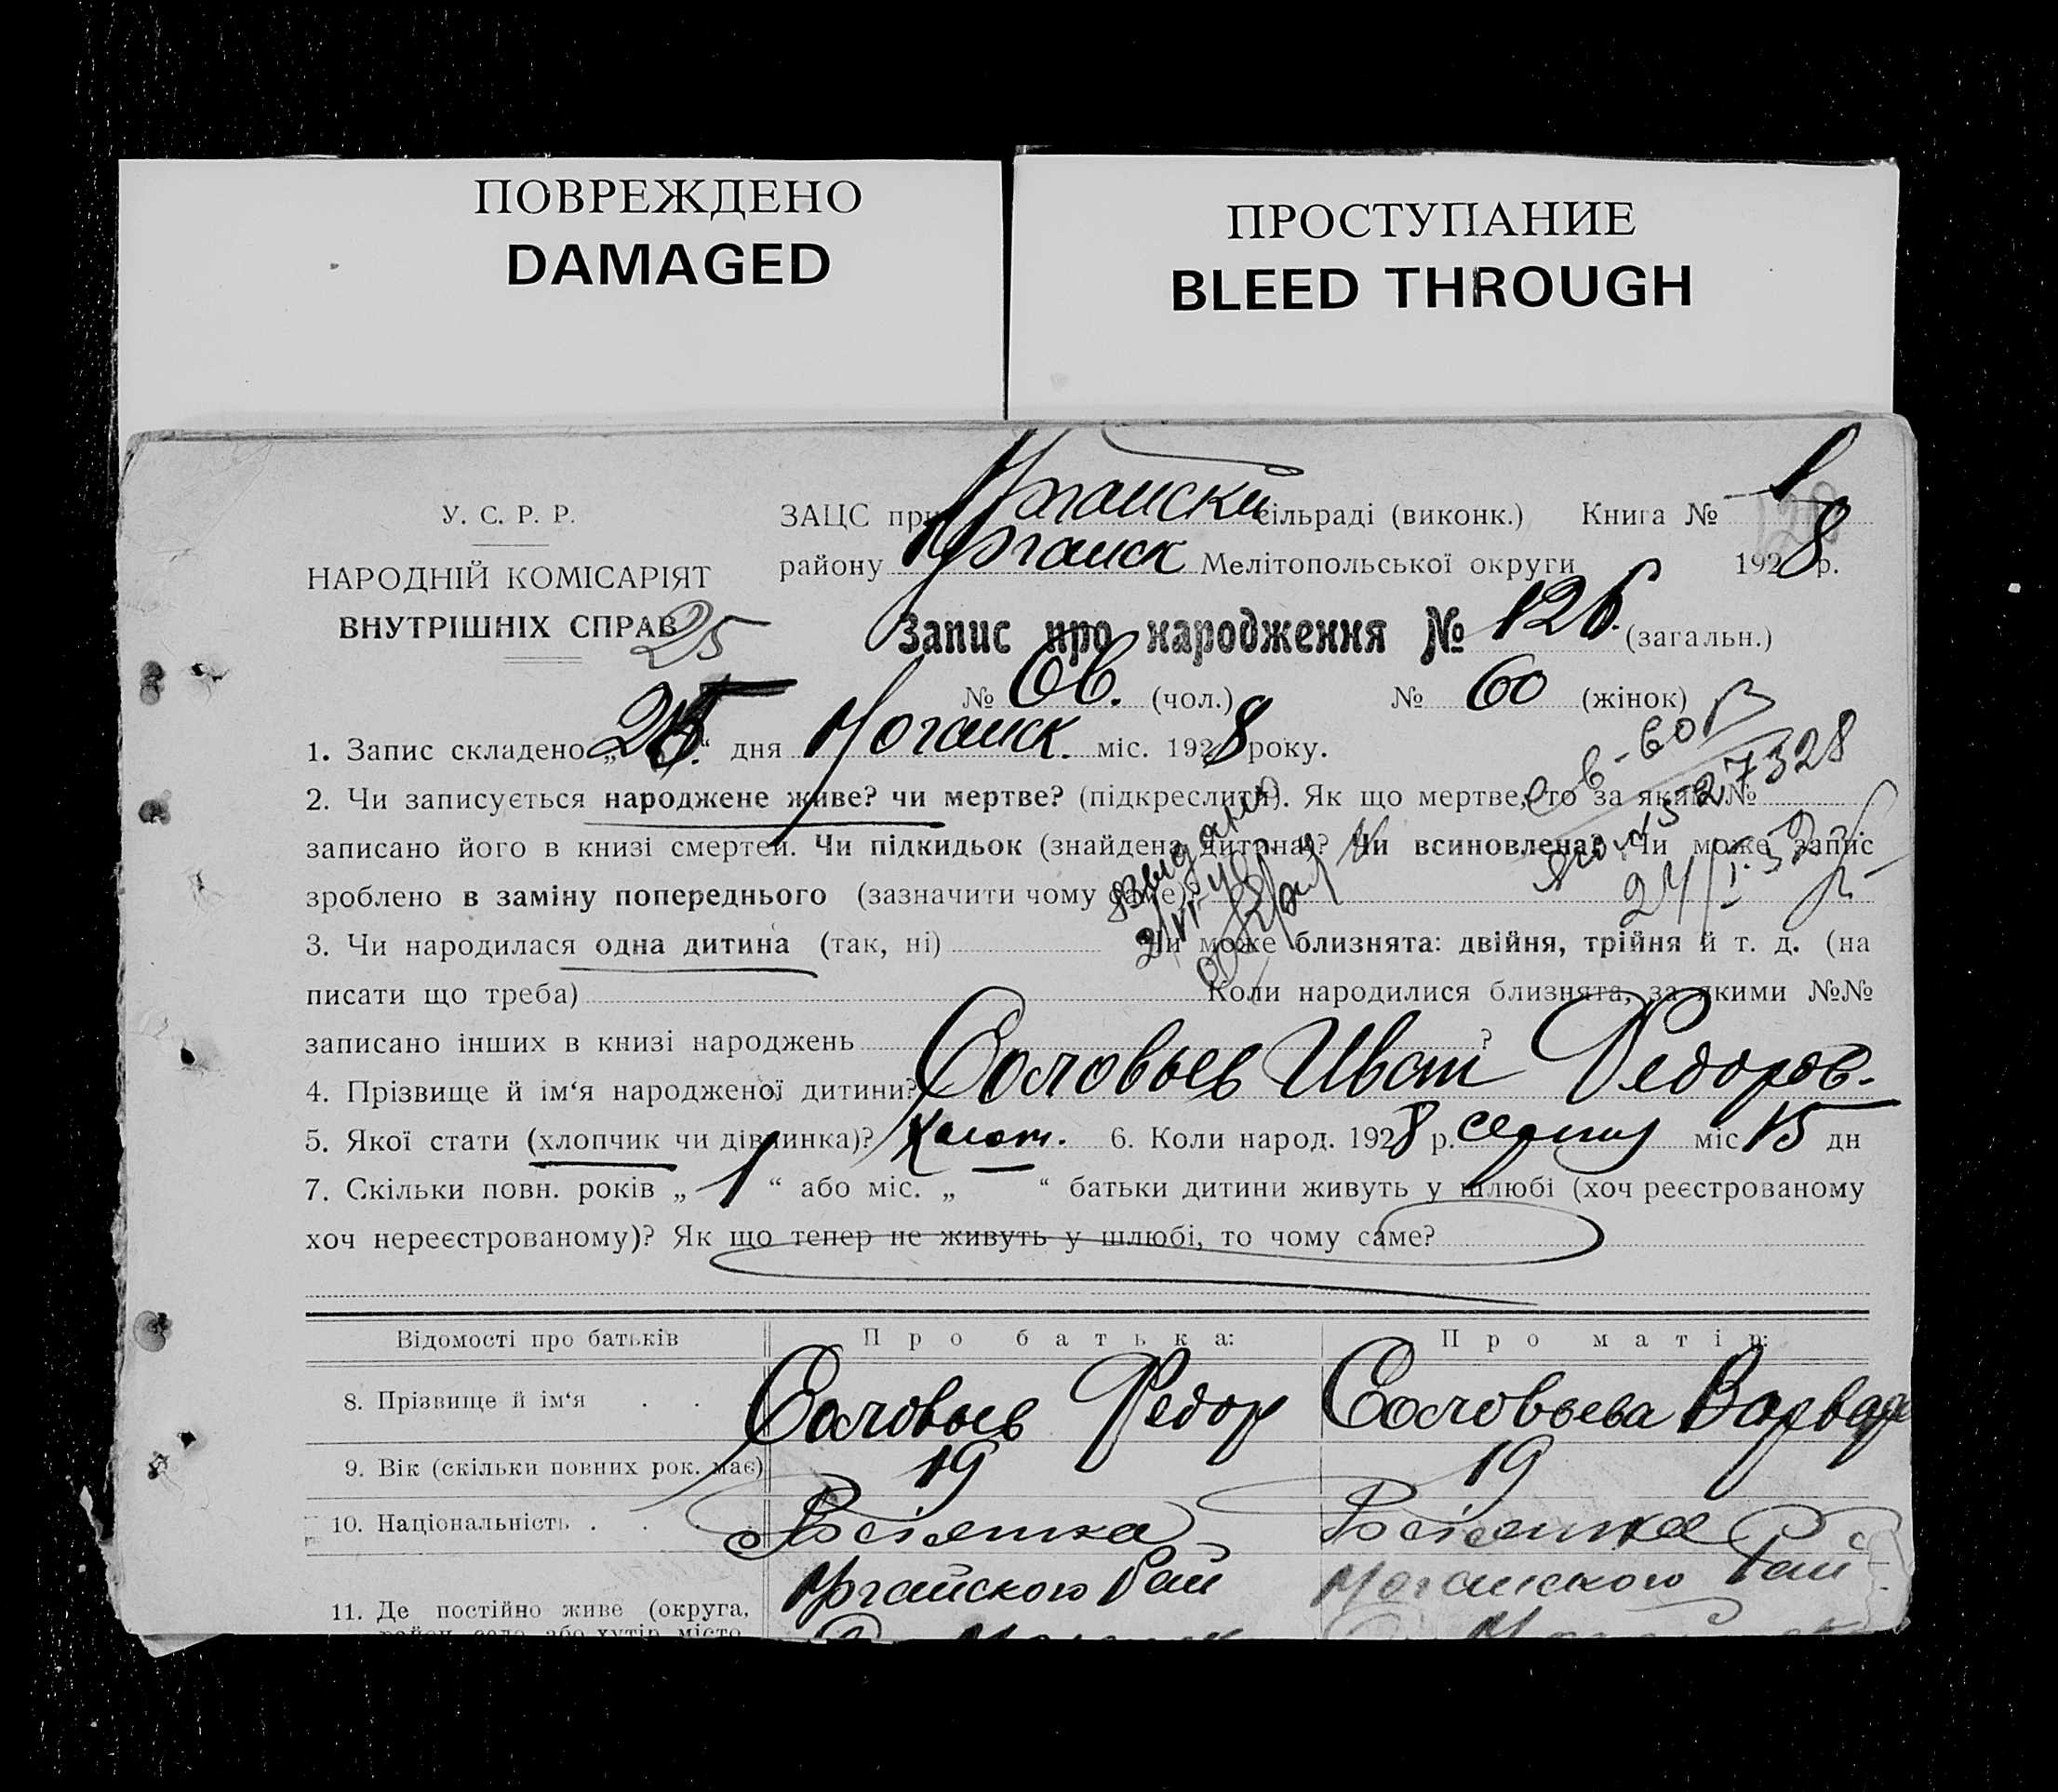 ПОВРЕЖДЕНО
DAMAGED
ПРОСТУПАНИЕ
BLEED THROUGH
У. С. Р. Р.
НАРОДНІЙ КОМІСАРІЯТ
ВНУТРІШНІХ СПРАВ
25
ЗАЦС при сільраді (виконк.) Книга № 1
району Мелітопольської округи 1928 р.
Запис про народження № 126. (загальн.)
№ 66. (чол.) № 60 (жінок)
1. Запис складено „25“ дня міс. 1928 року.
2. Чи записується народжене живе? чи мертве? (підкреслити). Як що мертве, то за яким №
записано його в книзі смертей. Чи підкидьок (знайдена дитина)? Чи всиновлена? Чи може запис
зроблено в заміну попереднього (зазначити чому саме)
3. Чи народилася одна дитина (так, ні) Чи може близнята: двійня, трійня й т. д. (на
писати що треба) Коли народилися близнята, за якими №№
записано інших в книзі народжень ?
4. Прізвище й ім‘я народженої дитини? Соловьев Иван Федоров.
5. Якої стати (хлопчик чи дівчинка)? 6. Коли народ. 1928 р. серпня міс 15 дн
7. Скільки повн. років „ 1 “ або міс. „ “ батьки дитини живуть у шлюбі (хоч реєстрованому
хоч нереєстрованому)? Як що тепер не живуть у шлюбі, то чому саме?
Відомості про батьків Про батька: Про матір:
8. Прізвище й ім‘я . . Соловьев Федор Соловьева Варвара
9. Вік (скільки повних рок. має) 19 19
10. Національність . . .
11. Де постійно живе (округа,
район, село або хутір, місто